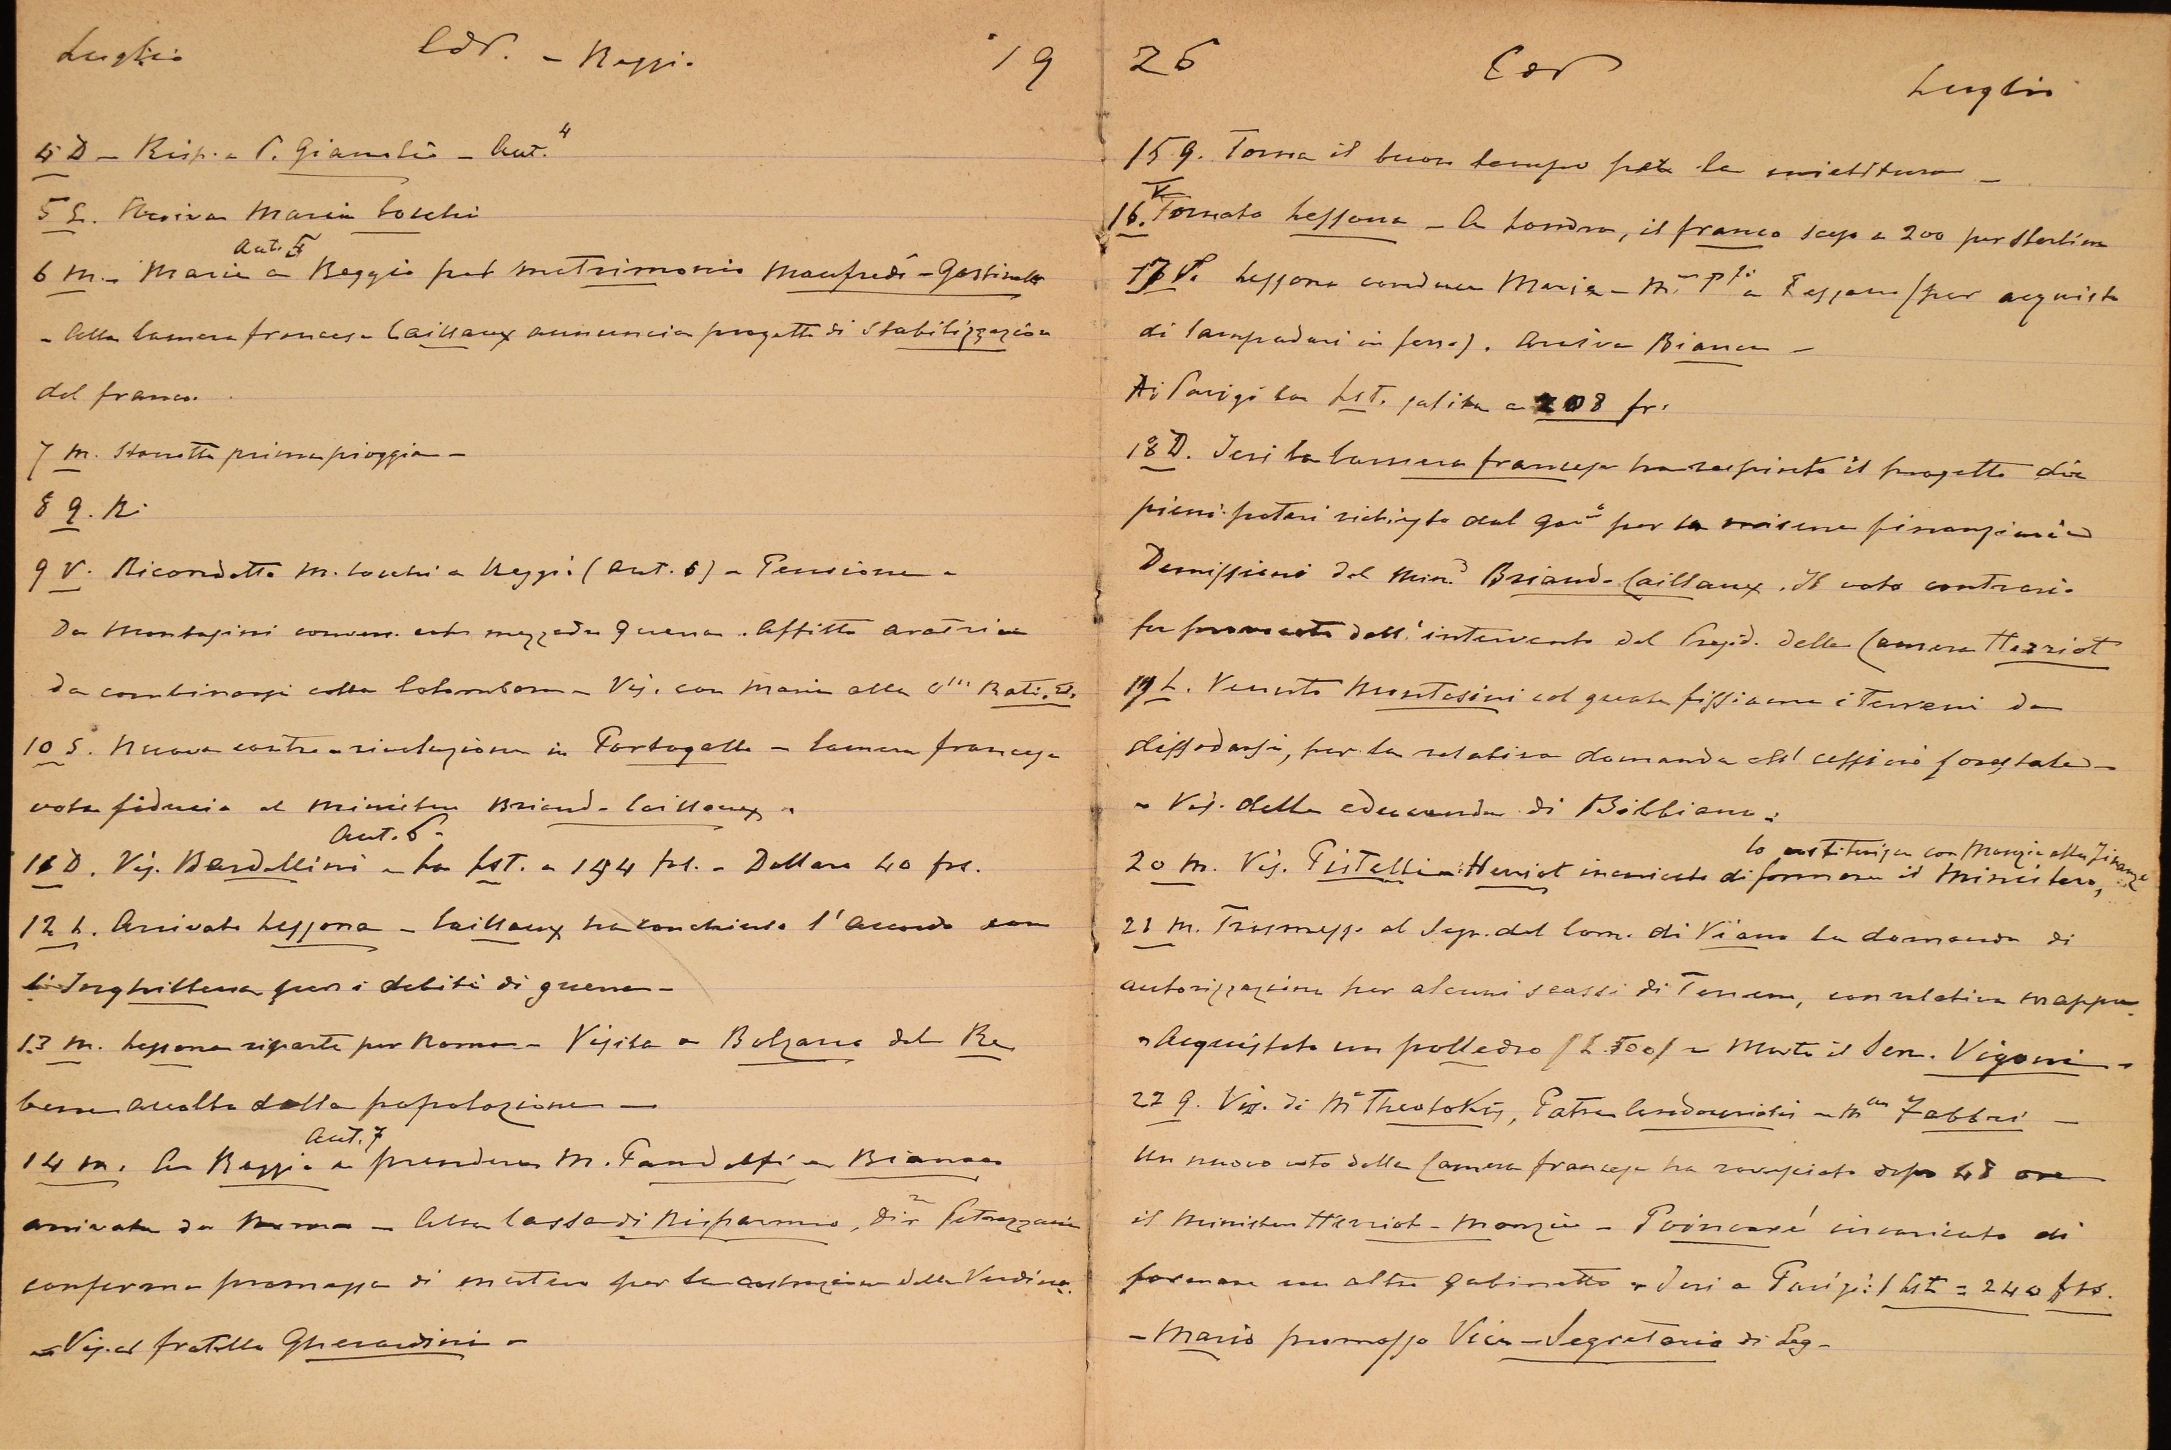 Luglio CdV. - Reggio 19
4 D - Risp. a P. Giamelio - Aut. 4
5 L. Arriva Maria Cocchi
Aut. 5
6 M. - Maria a Reggio pel matrimonio Manfredi - Gastinelli
- Alla Camera francese Caillaux annuncia progetti di Stabilizzazione
del franco.
7 M. Stanotte prima pioggia -
8 G. R.
9 V. Ricondotta M. Cocchi a Reggio (Aut. 6) - Pensione -
Da Montasini conven. mezzadro Guerra. Affitto aratrice
da combinarsi colla Colombara - Vis. con Maria alla
10 S. Nuova contro-rivoluzione in Portogallo - Camera francese
vota fiducia al Ministero Briand-Caillaux -
Aut. 6
11 D. Vis. Bardellini - La Lst. a 194 frs. - Dollaro 40 frs.
12 L. Arrivato Lessona - Caillaux ha conchiuso l'accordo con
l'Inghilterra per i debiti di guerra -
13 M. Lessona riparte per Roma - Visita a Bolzano del Re
bene accolto dalla popolazione -
Aut. 7
14 M. A Reggio a prendere M. Pandolfi e Bianca
arrivate da Roma - Alla Cassa di Risparmio, Dir.e Petrazzani
conferma promessa di mutuo per la costruzione della Verdina.
- Vis. al fratello Gherardini -
26 CdV Luglio
15 G. Torna il buon tempo per la mietitura -
16. V Tornato Lessona - A Londra, il franco sceso a 200 per sterlina
17 S. Lessona conduce Maria - M. a Fezzano (per acquisto
di lampadari in ferro). Arriva Bianca -
A Parigi la Lst. salita a 208 fr.
18 D. Ieri la Camera francese ha respinto il progetto di
pieni poteri richiesto dal Gov.o per la misure finanziarie
Demissioni del Min.o Briand-Caillaux. Il voto contrario
fu provocato dall'intervento del Presid. della Camera Herriot
19 L. Venuto Montasini col quale fissiamo i terreni da
dissodarsi, per la relativa domanda all'ufficio forestale -
- Vis. delle educande di Bibbiano.
lo costituisce con Monzie alle Finanze
20 M. Vis. Pistelli - Herriot incaricato di formare il Ministero,
21 M. Trasmesso al Segr. del Com. di Viano la domanda di
autorizzazione per alcuni scassi di Terreno, con relativa mappa.
- Acquistato un polledro (L. 500) - Morto il Sen. Vigoni -
22 G. Vis. di Mr Theotokis, Patre - Mme Fabbri -
Un nuovo voto della Camera francese ha rovesciato dopo 48 ore
il Ministero Herriot - Monzie - Poincaré incaricato di
formare un altro gabinetto - Ieri a Parigi: 1 Lst = 240 frs.
- Mario promosso Vice-Segretario di Leg -